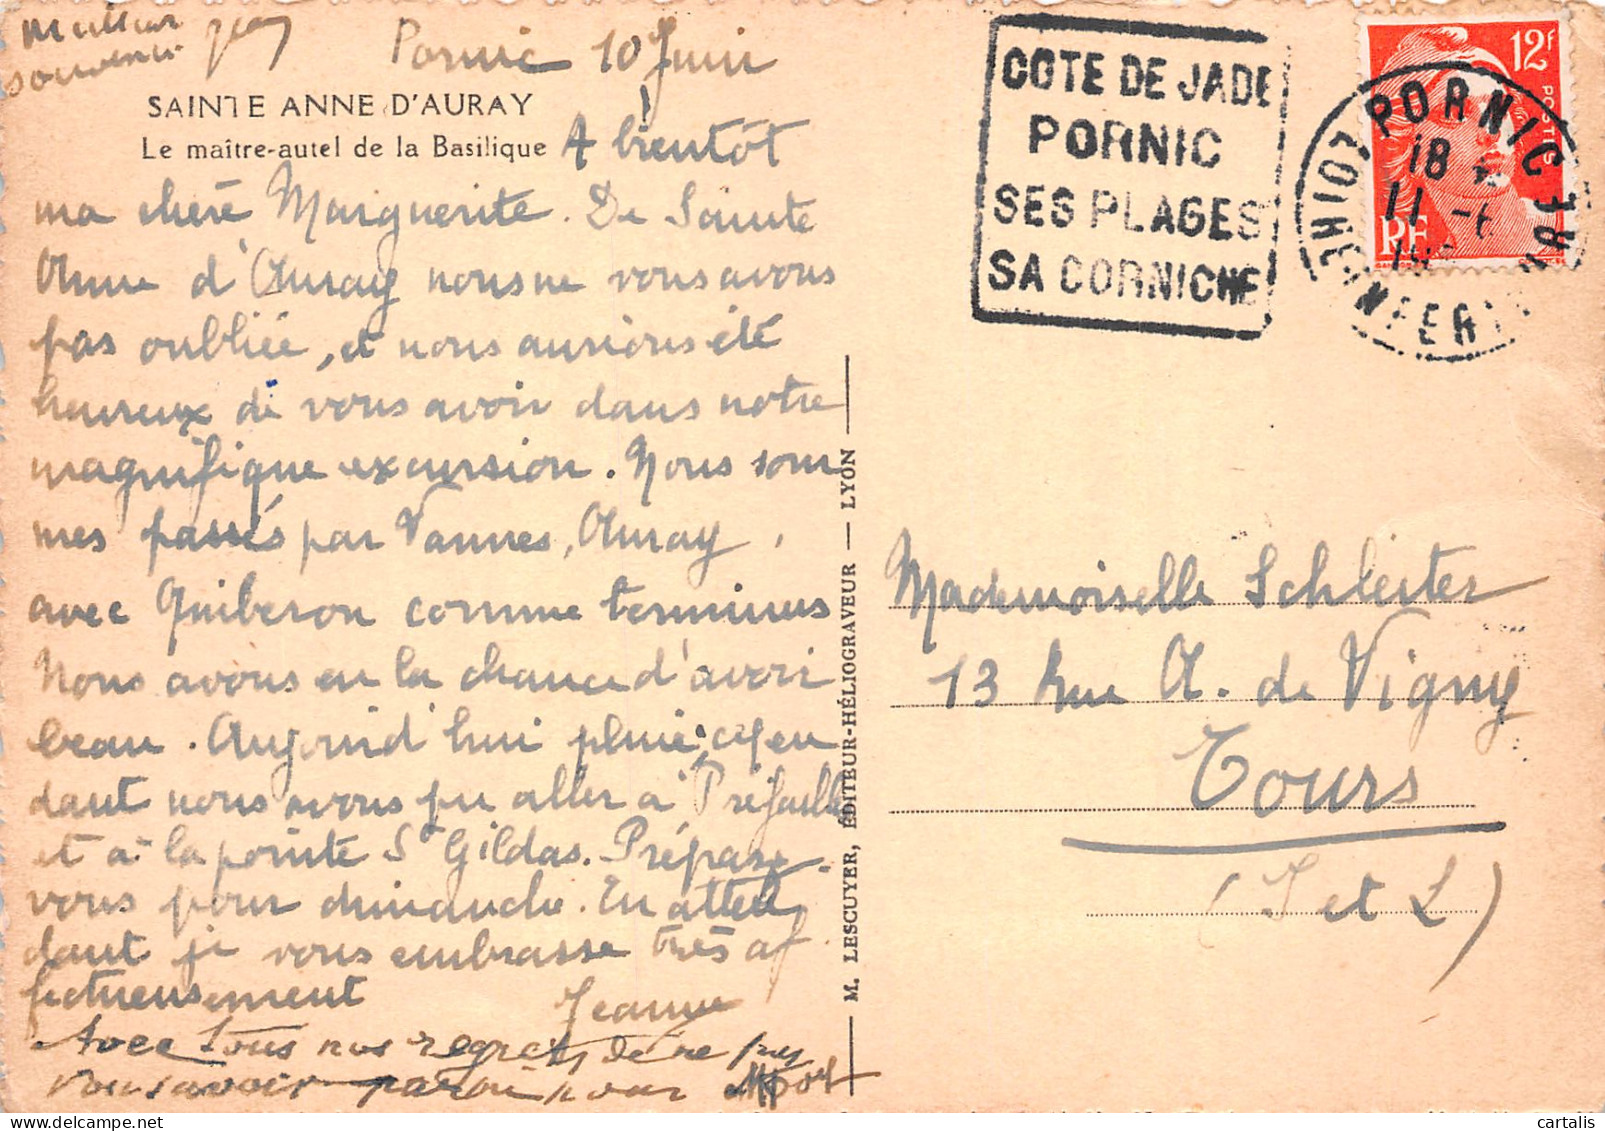 Meilleur
souvenir Jean
Pornic 10 Juin
SAINTE ANNE D'AURAY
Le maître-autel de la Basilique
A bientôt !
ma chère Marguerite. De Sainte
Anne d'Auray nous ne vous avons
pas oubliée, et nous aurions été
heureux de vous avoir dans notre
magnifique excursion. Nous som
mes passés par Vannes, Auray,
avec Quiberon comme terminus
Nous avons eu la chance d'avoir
beau. Aujourd'hui pluie, cepen
dant nous avons pu aller à Préfaille
et à la pointe St Gildas. Préparez
vous pour dimanche. En atten
dant je vous embrasse très af
fectueusement
Jeanne
Avec tous nos regrets de ne pas
vous avoir parmi nous
M. LESCUYER, ÉDITEUR-HÉLIOGRAVEUR — LYON
COTE DE JADE
PORNIC
SES PLAGES
SA CORNICHE
12F
POSTES
RF
PORNIC
18
11 -6
LOIRE INFERIEURE
Mademoiselle Schleiter
13 rue A. de Vigny
Tours
(I et L)
cartalis